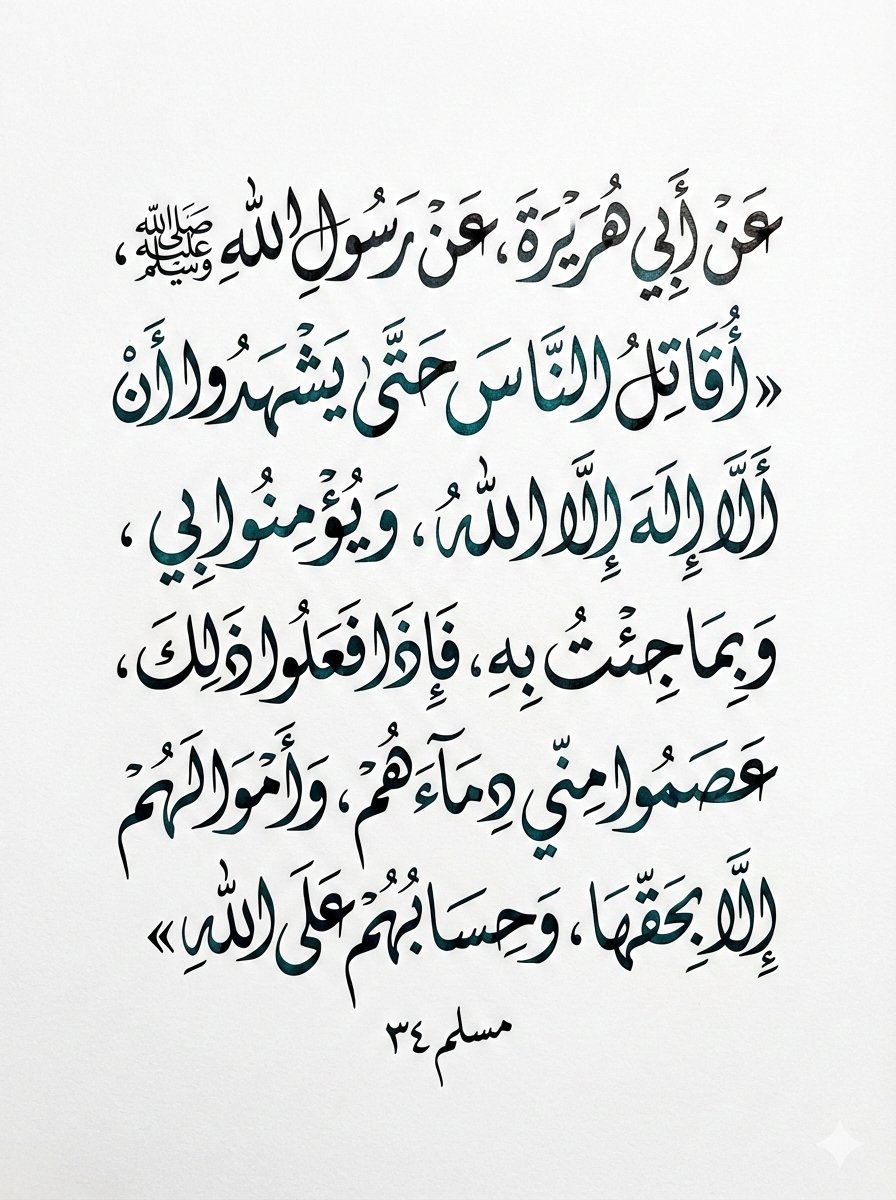 عَنْ أَبِي هُرَيْرَةَ، عَنْ رَسُولِ اللهِ ﷺ،
«أُقَاتِلُ النَّاسَ حَتَّى يَشْهَدُوا أَنْ
أَلَّا إِلَهَ إِلَّا اللهُ، وَيُؤْمِنُوا بِي،
وَبِمَا جِئْتُ بِهِ، فَإِذَا فَعَلُوا ذَلِكَ،
عَصَمُوا مِنِّي دِمَآءَهُمْ، وَأَمْوَالَهُمْ
إِلَّا بِحَقِّهَا، وَحِسَابُهُمْ عَلَى اللهِ»
مسلم ٣٤